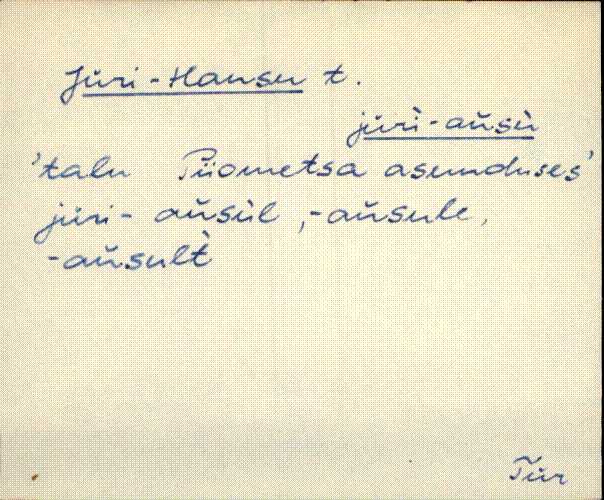 Jüri-Hansu t.
jüri̬-aǔsu̬
'talu Piiometsa asunduses'
jüri- aǔsùl, -aǔsule,
-aǔsult̀
Tür